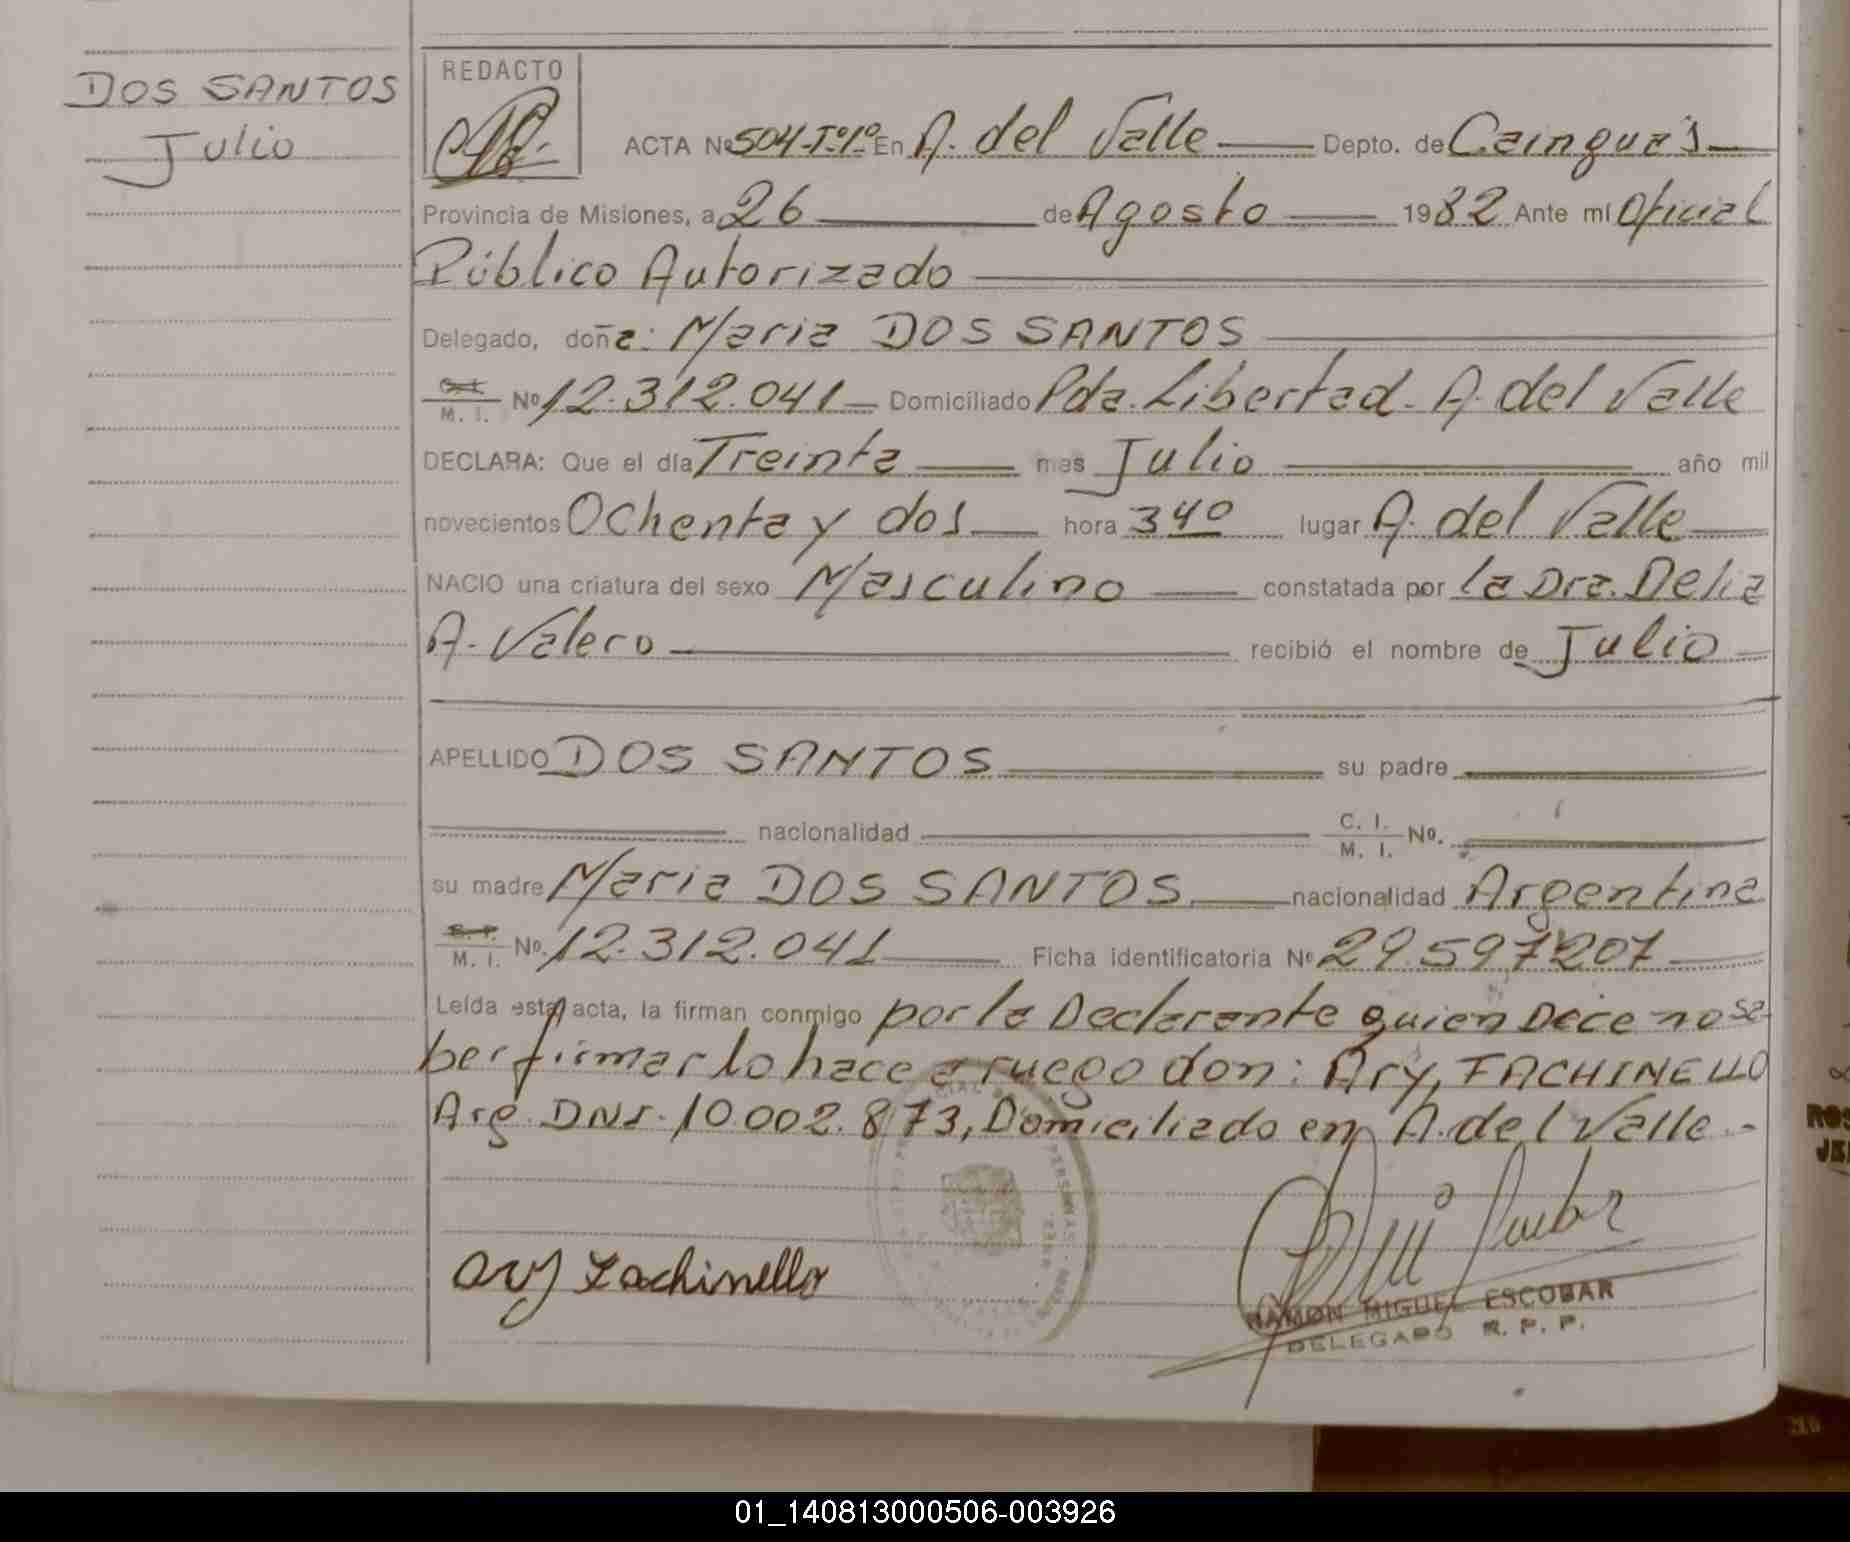 DOS SANTOS
Julio
REDACTO
ACTA Nº 504-Tº1º- En A. del Valle Depto. de Cainguás
Provincia de Misiones, a 26 de Agosto 1982 Ante mí Oficial
Público Autorizado
Delegado, doña: Maria DOS SANTOS
M. I. Nº 12.312.041 Domiciliado Pda. Libertad. A. del Valle
DECLARA: Que el día Treinta mes Julio año mil
novecientos Ochenta y dos hora 3 40 lugar A. del Valle
NACIO una criatura del sexo Masculino constatada por la Dra. Delia
A. Valero recibió el nombre de Julio
APELLIDO DOS SANTOS su padre
nacionalidad C. I. M. I. Nº.
su madre Maria DOS SANTOS. nacionalidad Argentina
M. I. Nº. 12.312.041 Ficha identificatoria Nº 29.597207
Leída esta acta, la firman conmigo por la Declarante quien Dice no sa
ber firmar lo hace a ruego don: Ary, FACHINELLO
Arg. DNI. 10.002.873, Domiciliado en A. del Valle.-
Ary Fachinello
RAMON MIGUEL ESCOBAR
DELEGADO R. P. P.
01_140813000506-003926